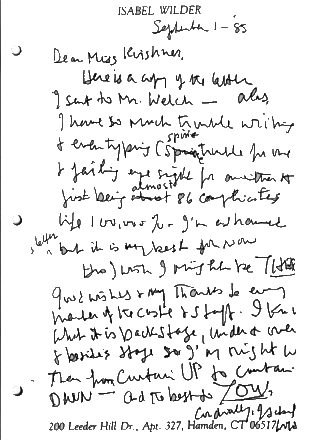 ISABEL WILDER
September 1 - '85
Dear Miss Krishner,
Here is a copy of the letter
I sent to Mr. Welch — alas,
I have so much trouble writing
& even typing (spine trouble for one
& failing eye sight for another &
just being almost 86 complicates
life 100,000 %. I'm ashamed
but it is my best for now
letter
Good wishes & my thanks to every
member of the caste & staff. I know
what it is backstage, under & over
& beside stage so I'm right
Then from Curtain UP to Curtain
DOWN — and the best to YOU,
Cordially, Isabel
200 Leeder Hill Dr., Apt. 327, Hamden, CT 06517